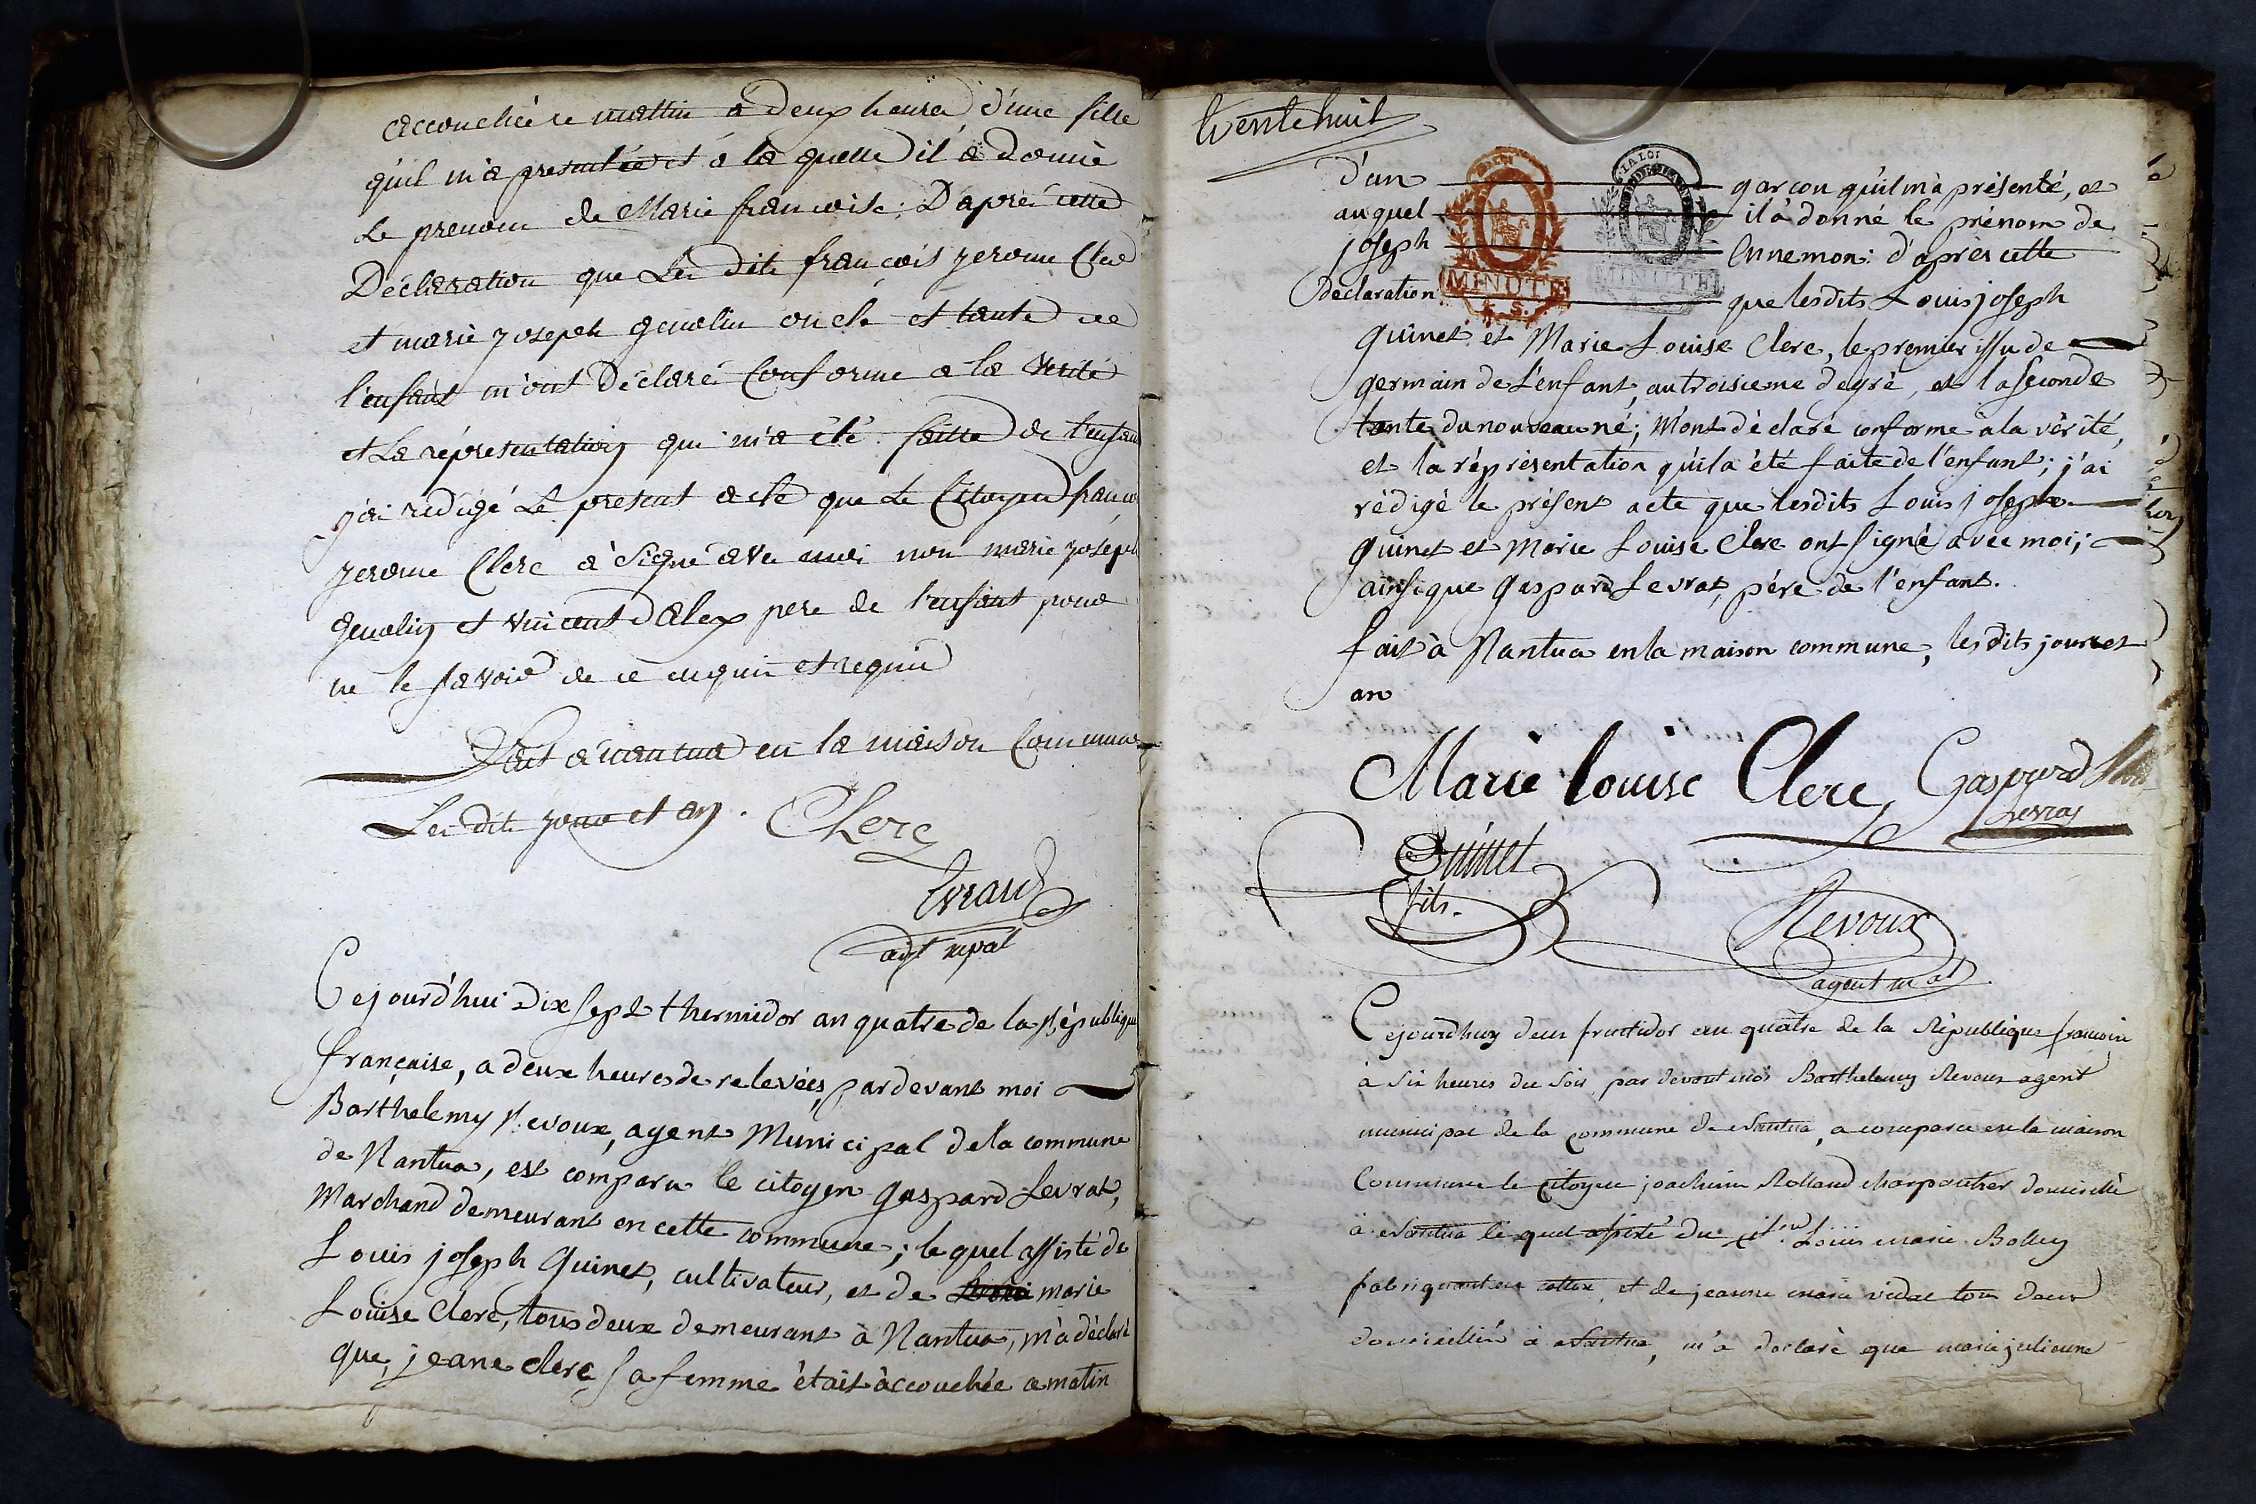 accouchée ce mattin a deux heures d'une fille
qu'il m'a presentée et a la quelle il a donné
le prenom de Marie francoise; D'apré cette
Déclaration que Les dits francois jerome Clerc
et marie joseph genolin oncle et tante de
l'enfant m'ont Déclaré Conforme a la verité
et La représentation qui m'a été faitte de l'enfant
j'ai redigé Le present acte que Le Citoyen francois
jerome Clerc a signé avec moi non marie joseph
genolin et vincent Dalex pere de l'enfant pour
ne le savoir de ce enquis et requis
Fait a nantua en la maison Commune
Les dits jour et an. Clerc
Evrard
adjt mpal
Cejourd'hui Dix sept thermidor an quatre de la République
française, a deux heures de relevées, pardevant moi
Barthelemy Revoux, agent Municipal de la commune
de Nantua, est comparu le citoyen gaspard Levrat,
Marchand demeurant en cette commune; le quel assisté de
Louis joseph Quinet, cultivateur, et de marie
Louise Clerc, tous deux demeurant à Nantua, m'a déclaré
que jeane clerc sa femme était accouchée ce matin
trente huit
d'un garcon qu'il m'a présenté, et
auquel il a donné le prénom de
joseph Ennemon: d'après cette
déclaration que lesdits Louis joseph
LA LOI
MINUTE
MINUTE
quinet et Marie Louise Clerc, le premier issu de
germain de L'enfant, au troisieme degré, et la seconde
tante du nouveau né; M'ont déclaré conforme à la vérité,
et la réprésentation qu'il a été faite de l'enfant; j'ai
rédigé le présent acte que lesdits Louis joseph
quinet et Marie Louise Clerc ont signé avec moi;
ainsi que gaspard Levrat, père de l'enfant.
fait à Nantua en la maison commune, lesdits jour et
an
Marie louise Clerc Gaspard
Levrat
Quinet
fils.
Revoux
agent mal
Cejourdhuy deux fructidor an quatre de la République francoise
à six heures du soir, par devant moi Barthelemy Revoux agent
municipal de la commune de Nantua, a comparu en la maison
Commune le citoyen joachim Rolland charpentier domicilié
à Nantua le quel assisté du citen Louis marie Bolley
fabriquant en cotton, et de jeanne marie vidal tous deux
domiciliés à Nantua, m'a declaré que marie julienne